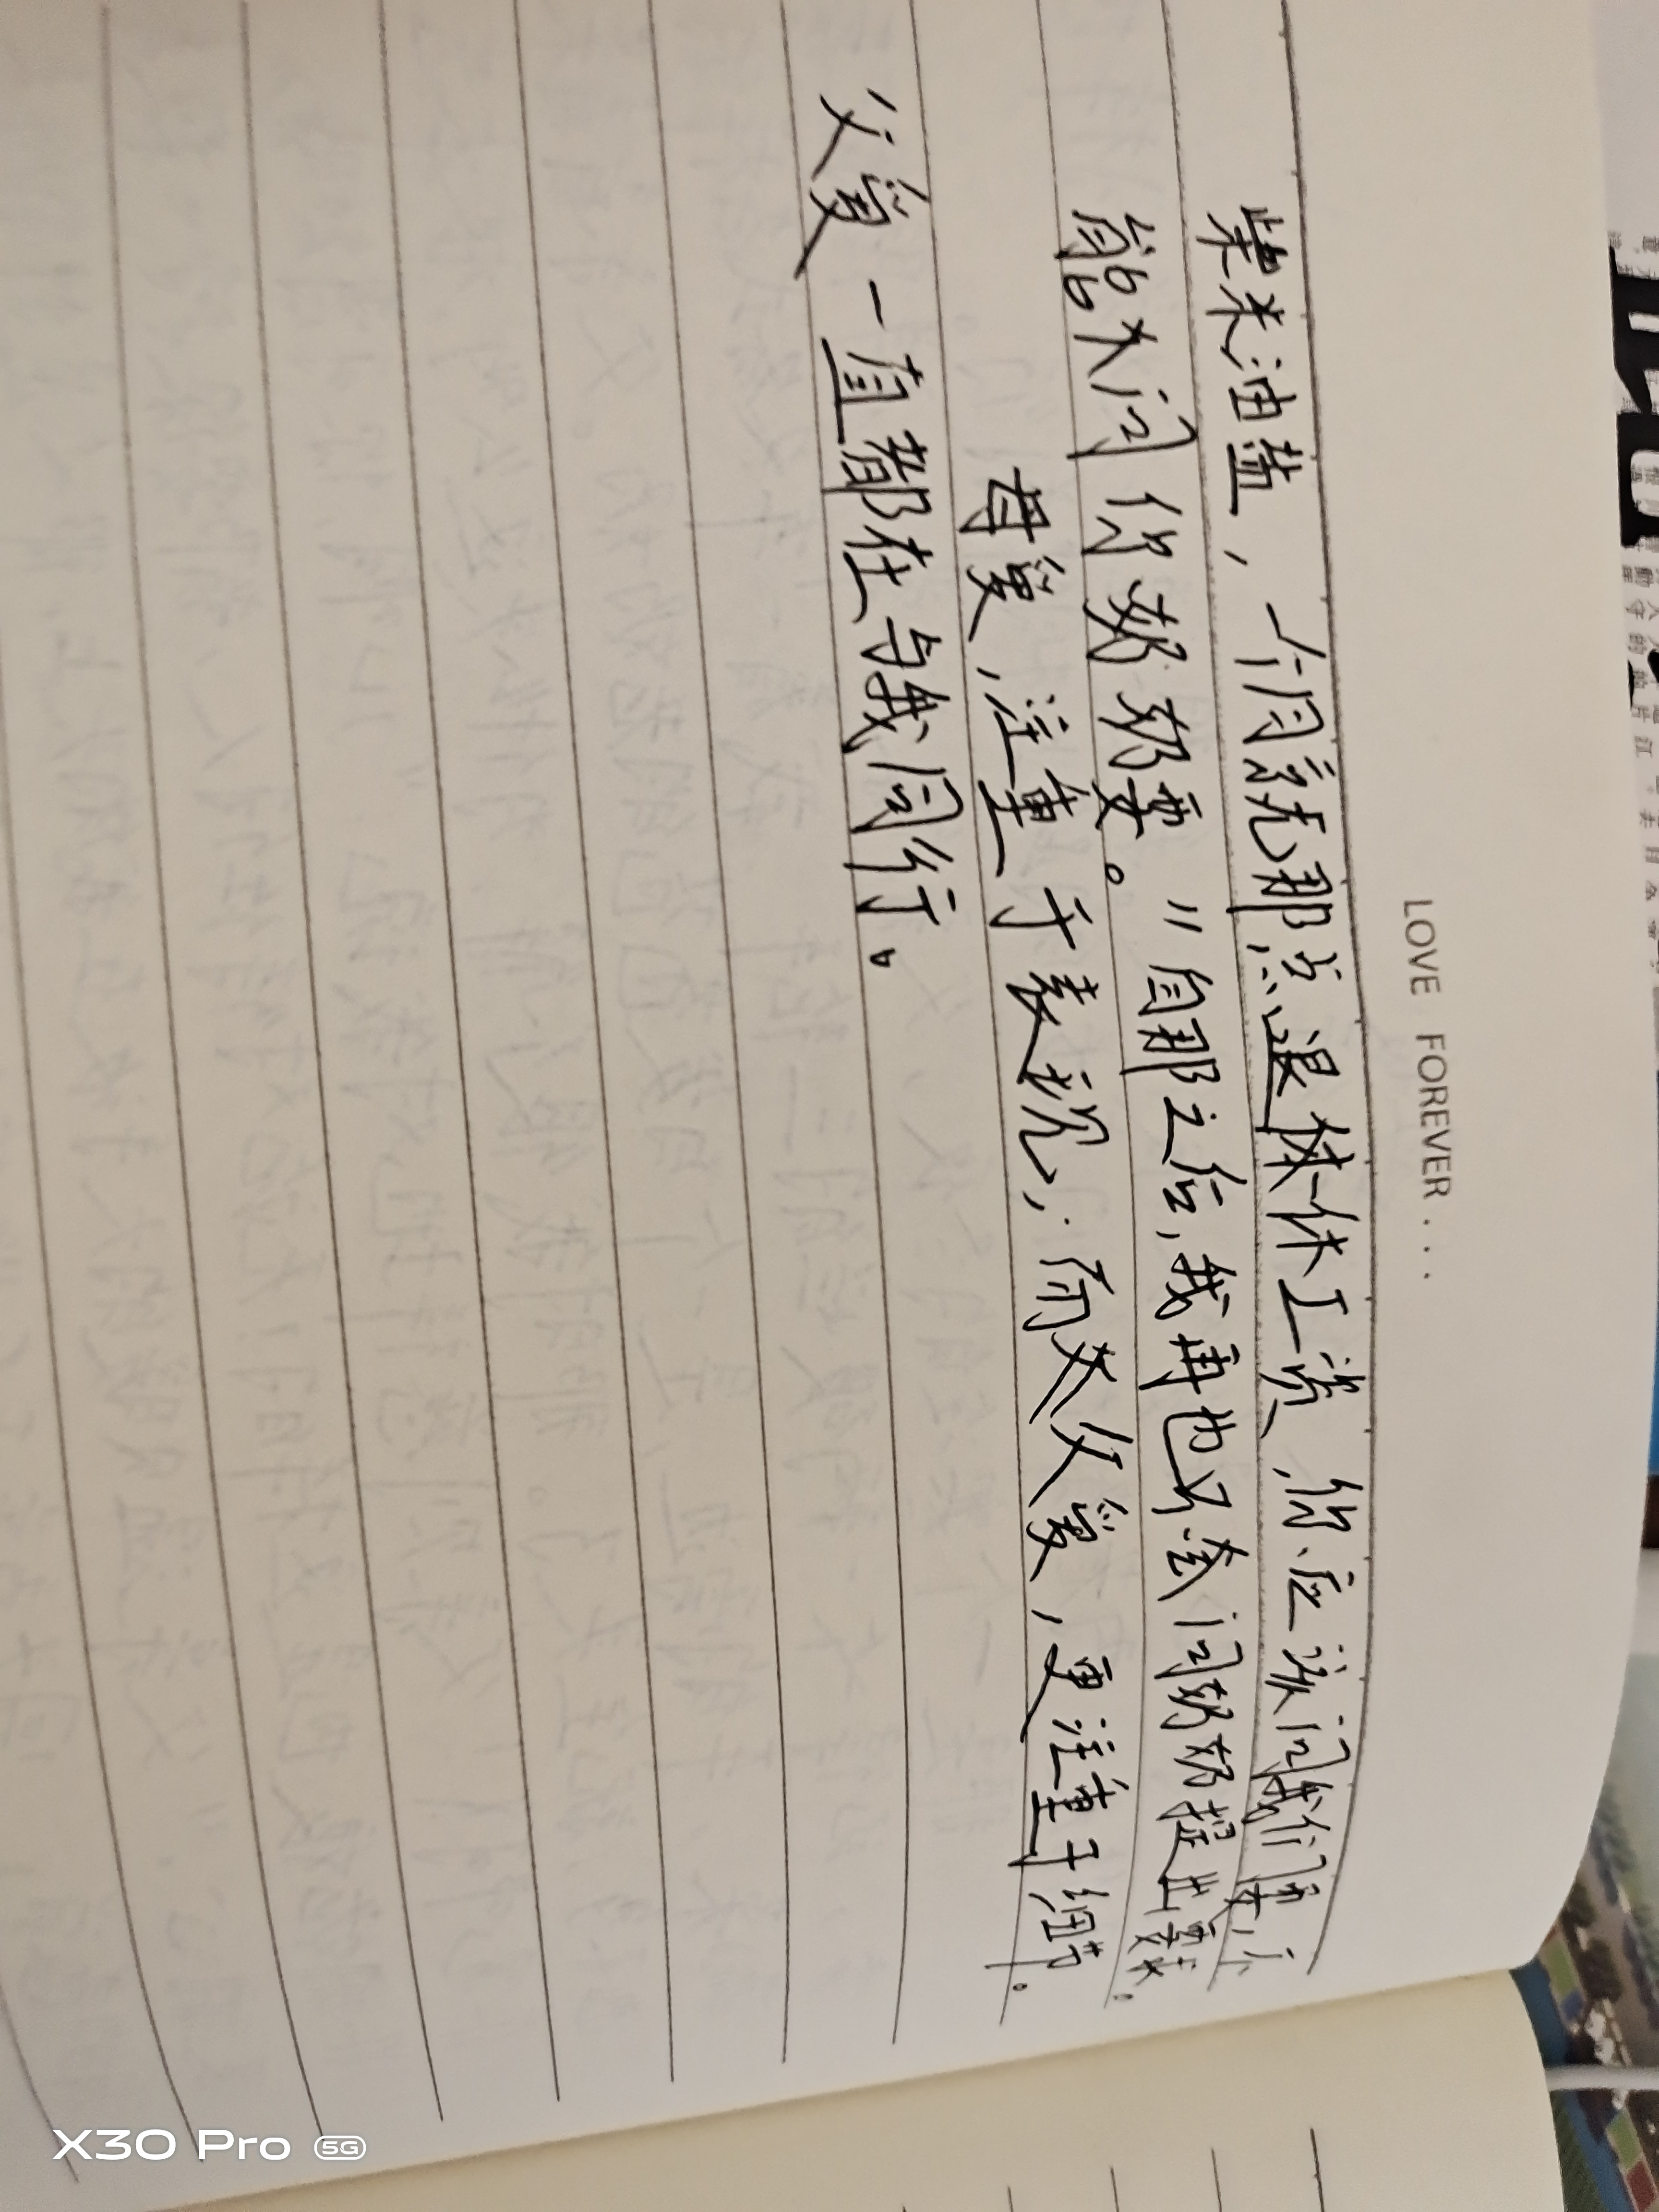 LOVE FOREVER...
柴米油盐，一个月就那点退休工资，你应该问我们要，不
能大问你奶奶要。"自那之后，我再也不会问奶奶提出要求。
母爱，注重于表现；而父爱，更注重于细节。
父爱一直都在与我同行。
X30 Pro 5G